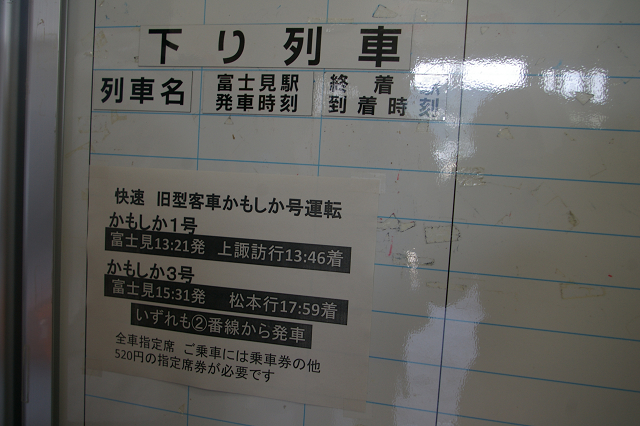 下り列車
列車名 富士見駅発車時刻 終着駅到着時刻
快速 旧型客車かもしか号運転
かもしか1号
富士見13:21発 上諏訪行13:46着
かもしか3号
富士見15:31発 松本行17:59着
いずれも②番線から発車
全車指定席 ご乗車には乗車券の他
520円の指定席券が必要です